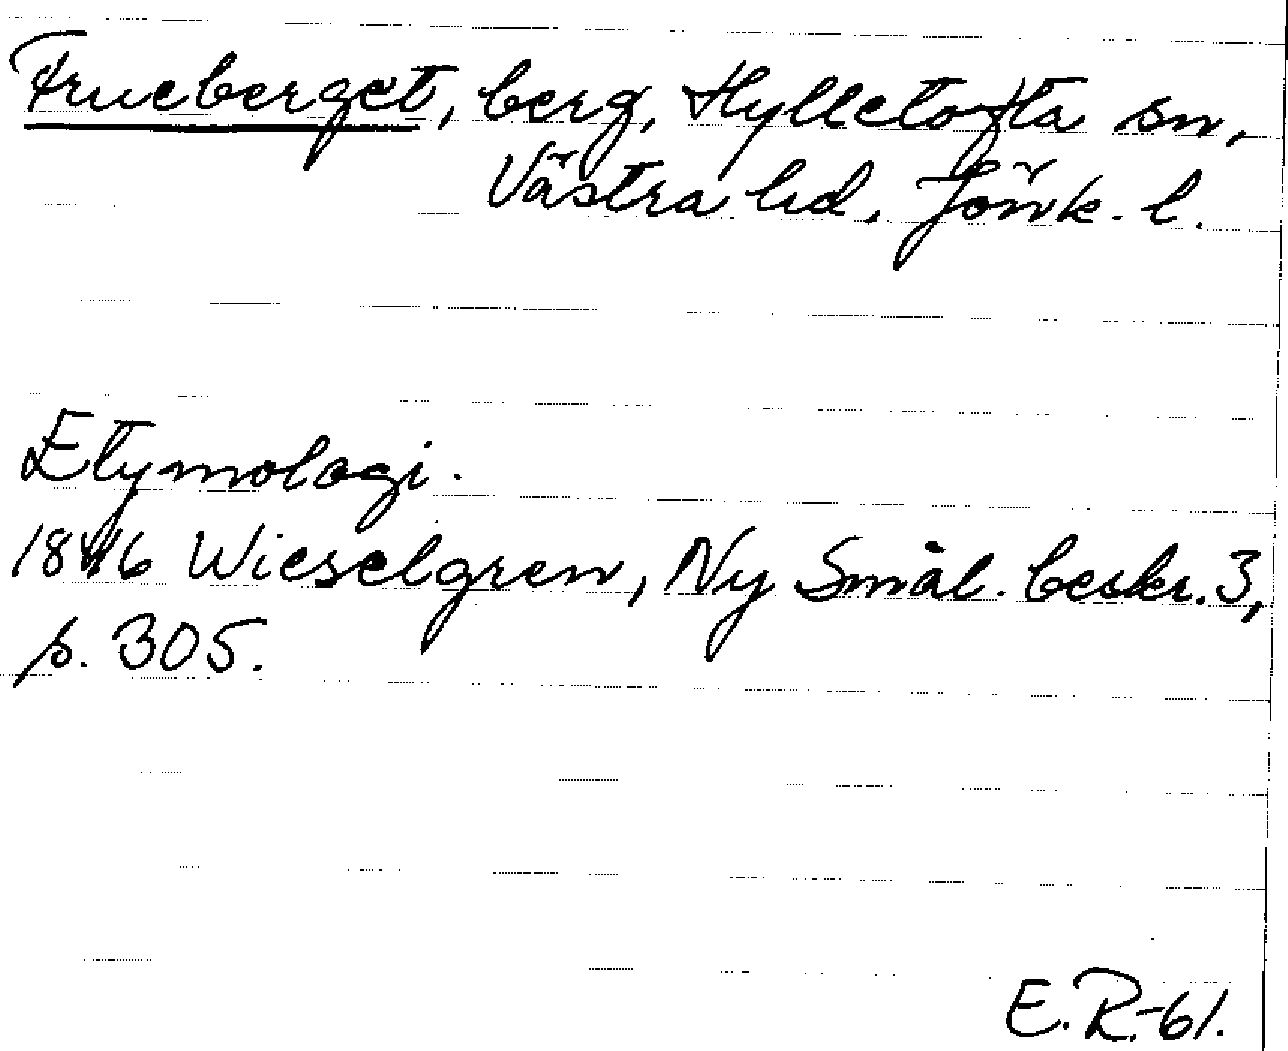 Frueberget, berg, Hylletofta sn,
Västra hd, Jönk. l.
Etymologi.
1846 Wieselgren, Ny Smål. beskr. 3,
s. 305.
E. R.-61.